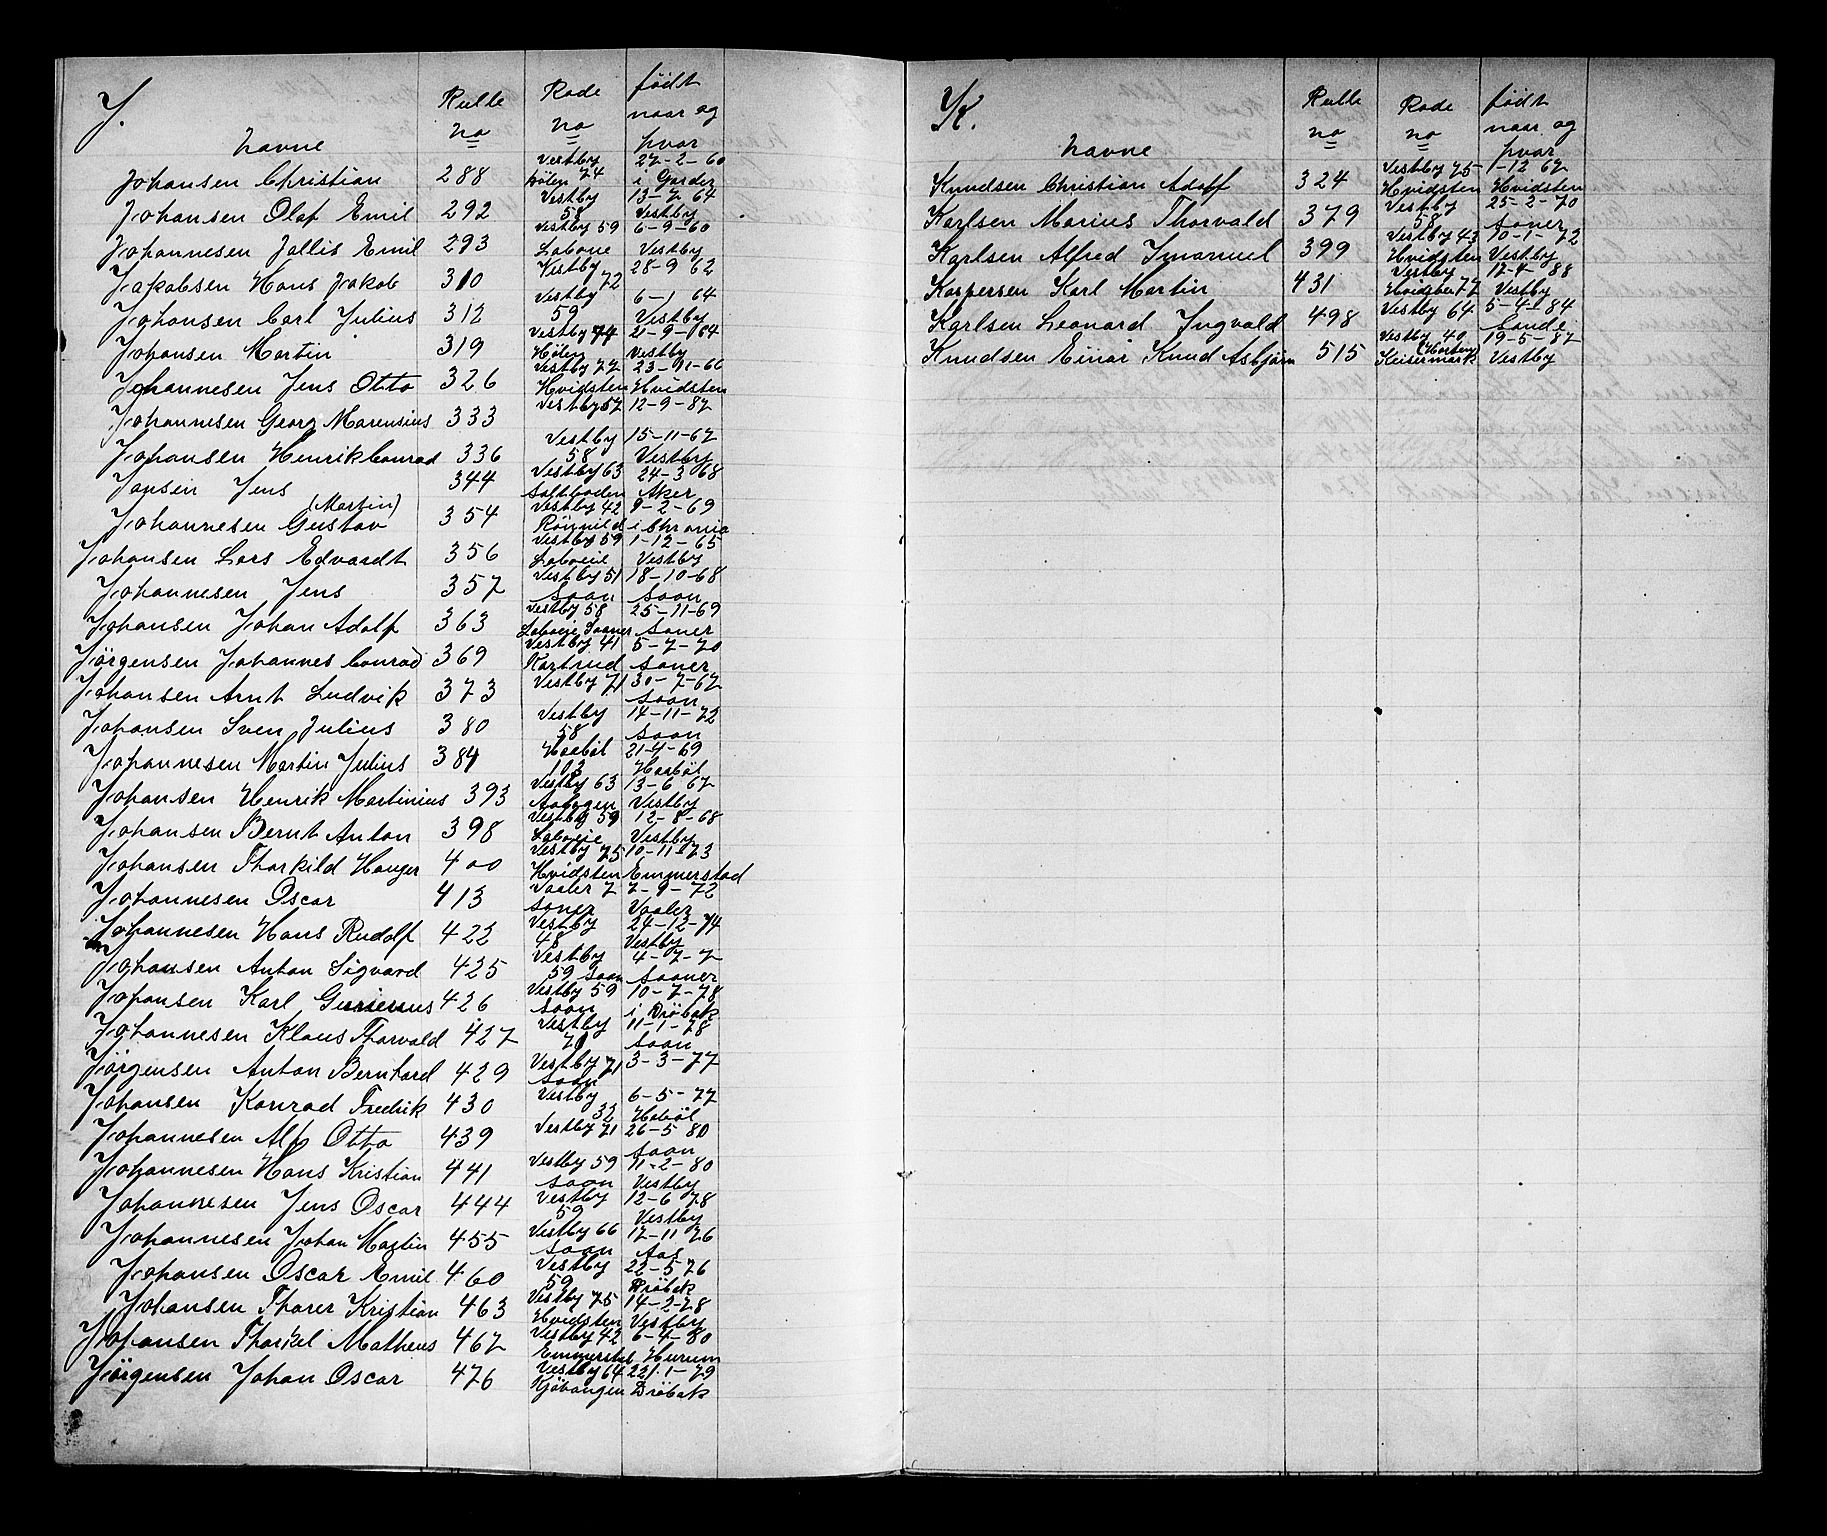 J.
Navne Rulle no Rode no født naar og hvor
Johansen Christian 288 Vestby Hølen 74 27-2-60 i Garder
Johansen Olaf Emil 292 Vestby 58 13-7 64 Vestby
Johannesen Jallis Emil 293 Vestby 59 Laboeie 6-9-60 Vestby
Jakobsen Hans Jakob 310 Vestby 72 28-9 62
Johansen Carl Julius 312 Vestby 59 6-1 64 Vestby
Johansen Martin 319 Vestby 74 Hølen 2-9-64 Vestby
Johannesen Jens Otto 326 Vestby 77 Hvidsten 23-11-66 Hvidsten
Johannesen Georg Marensius 333 Vestby 57 12-9-87
Johansen Henrik Conrad 336 Vestby 58 15-11-67 Vestby
Jansen Jens 344 Vestby 63 Saltboden 24-3 68 Aker
Johannesen Gustav (Martin) 354 Vestby 42 9-2-69 i Chrania
Johansen Lars Edvardt 356 Vestby 59 Laboeie 1-12-65 Vestby
Johannesen Jens 357 Vestby 51 Soon 18-10-68 Soon
Johansen Johan Adolf 363 Vestby 58 Laboeie Sooner 25-11-69 Soner
Jørgensen Johannes Conrad 369 Vestby 41 Kartrud 5-7-70 Soner
Johansen Arnt Ludvik 373 Vestby 71 30-7-67 Soon
Johansen Sven Julius 380 Vestby 58 14-11-72 Soon
Johannesen Martin Julius 384 Haabøl 103 21-4-69 Haabøl
Johansen Henrik Martinius 393 Vestby 63 13-6 67 Vestby
Johansen Bernt Anton 398 Vestby 59 Laboeie 12-8-68 Vestby
Johansen Thorkild Hauger 400 Vestby 75 Hvidsten 10-11-73 Emmerstad
Johannesen Oscar 413 Vaaler 7 Soner 7-9-72 Vaaler
Johannesen Hans Rudolf 422 Vestby 48 24-12-74 Vestby
Johansen Anton Sigvard 425 Vestby 59 Soon 4-7-7 Sooner
Johansen Karl 426 Vestby 59 Soon 10-7-78 i Drøbak
Johannesen Klaus Thorvald 427 Vestby 71 11-1-78 Soon
Jørgensen Anton Bernhard 429 Vestby 71 Soon 3-3-77
Johansen Konrad Fredrik 430 Vestby 32 6-5-77 Hobøl
Johannesen Alf Otto 439 Vestby 71 26-5 80 Soon
Johannesen Hans Kristian 441 Vestby 59 Soon 11-2-80 Vestby
Johannesen Jens Oscar 444 Vestby 59 12-6 78 Vestby
Johannesen Johan Martin 455 Vestby 66 Soon 17-11 76 Aas
Johansen Oscar Emil 460 Vestby 59 22-5 76 Drøbak
Johansen Thorer Kristian 463 Vestby 75 Hvidsten 14-2-78 Vestby
Johansen Thorkel Matheus 467 Vestby 42 Emmerstad 6-4-80 Hurum
Jørgensen Johan Oscar 476 Vestby 64 Kjøvangen 22/1-1-79 Drøbak
K.
Navne Rulle no Rode no født naar og hvor
Knudsen Christian Adolf 324 Vestby 75 Hvidsten 1-12 67 Hvidsten
Karlsen Marius Thorvald 379 Vestby 58 25-2-70 Soner
Karlsen Alfred Imanuel 399 Vestby 43 Hvidsten 10-1-72 Vestby
Kaspersen Karl Martin 431 Vestby Hvidsten 77 17-4-88 Vestby
Karlsen Leonard Ingvald 498 Vestby 64 5-4-84 Sande
Knudsen Einar Knud Asbjørn 515 Vestby 40 (Horten) Keisermark 19-5-87 Vestby